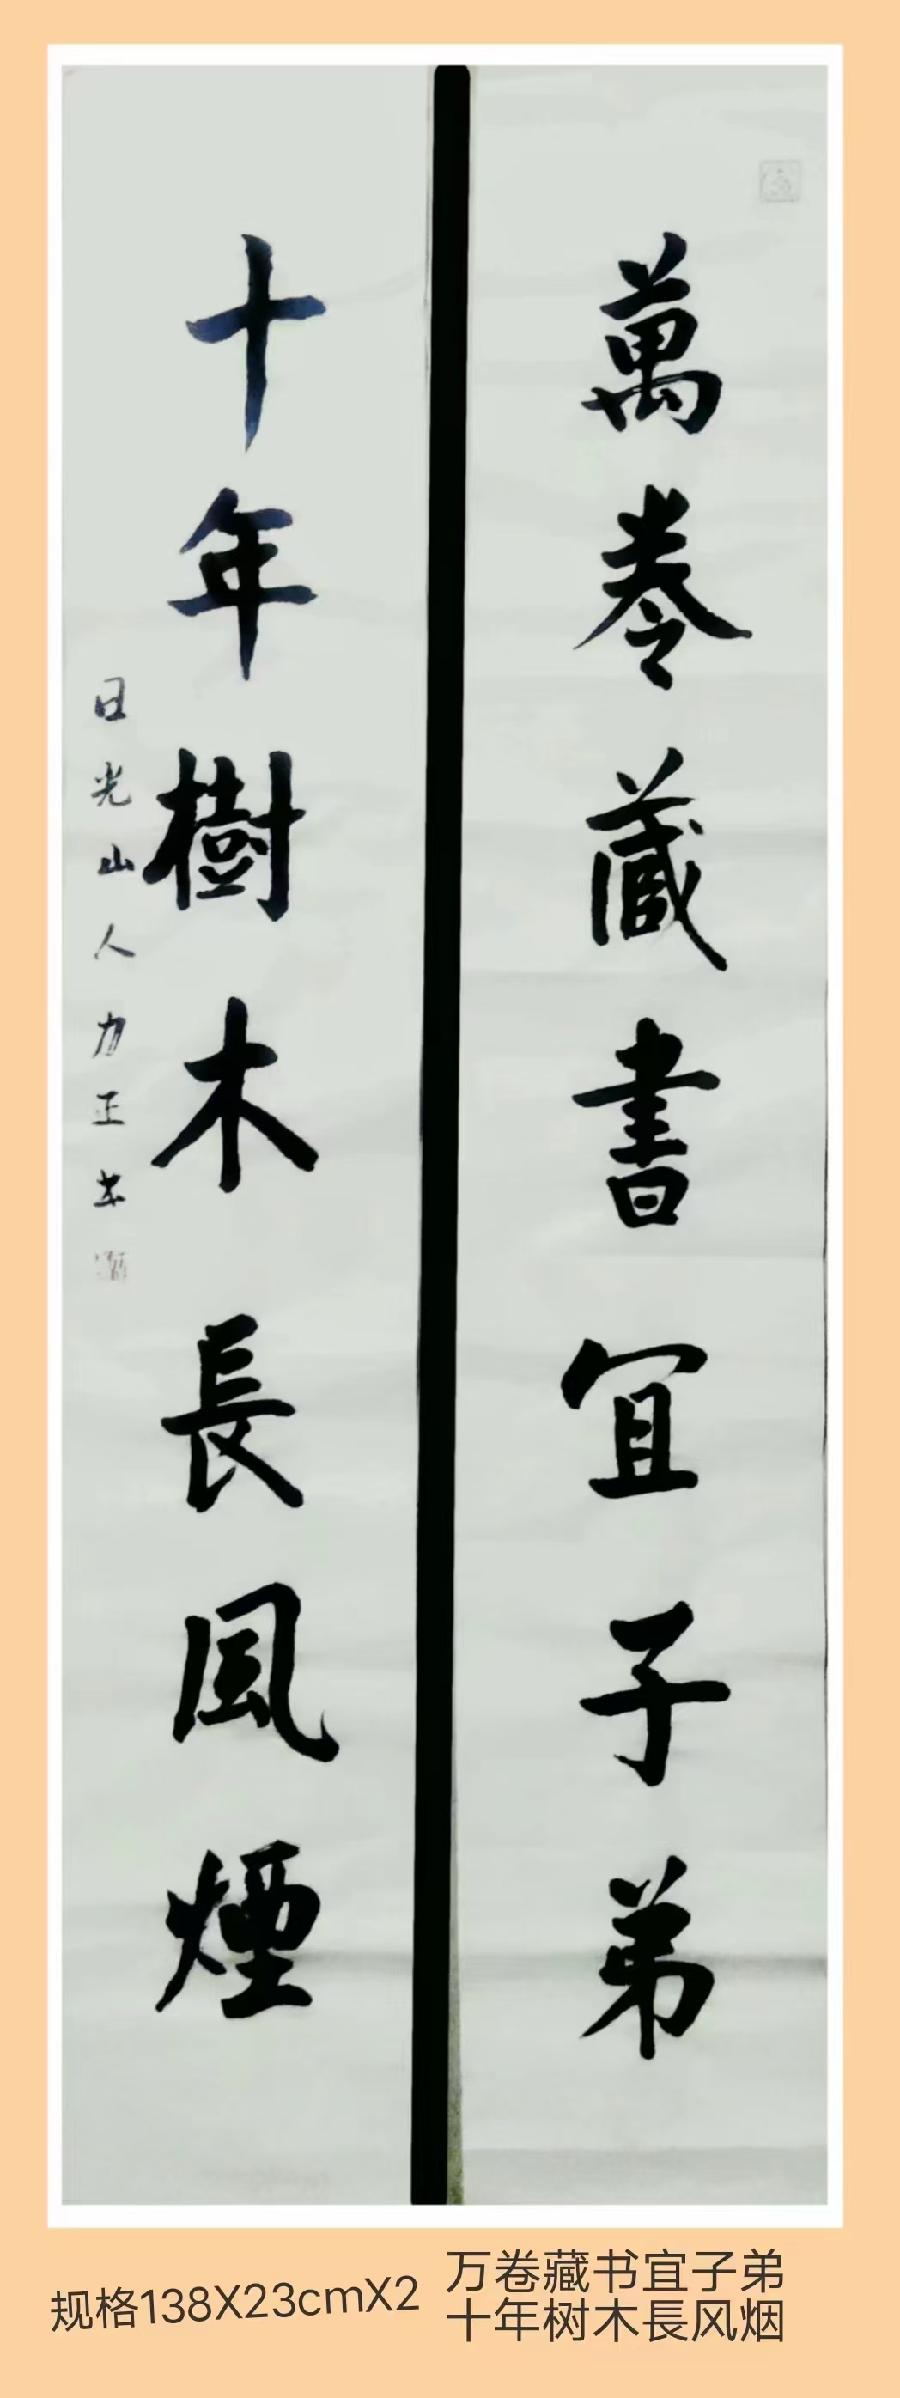 萬卷藏書宜子弟
十年樹木長風煙
日光山人力正书
规格138X23cmX2
万卷藏书宜子弟
十年树木長风烟